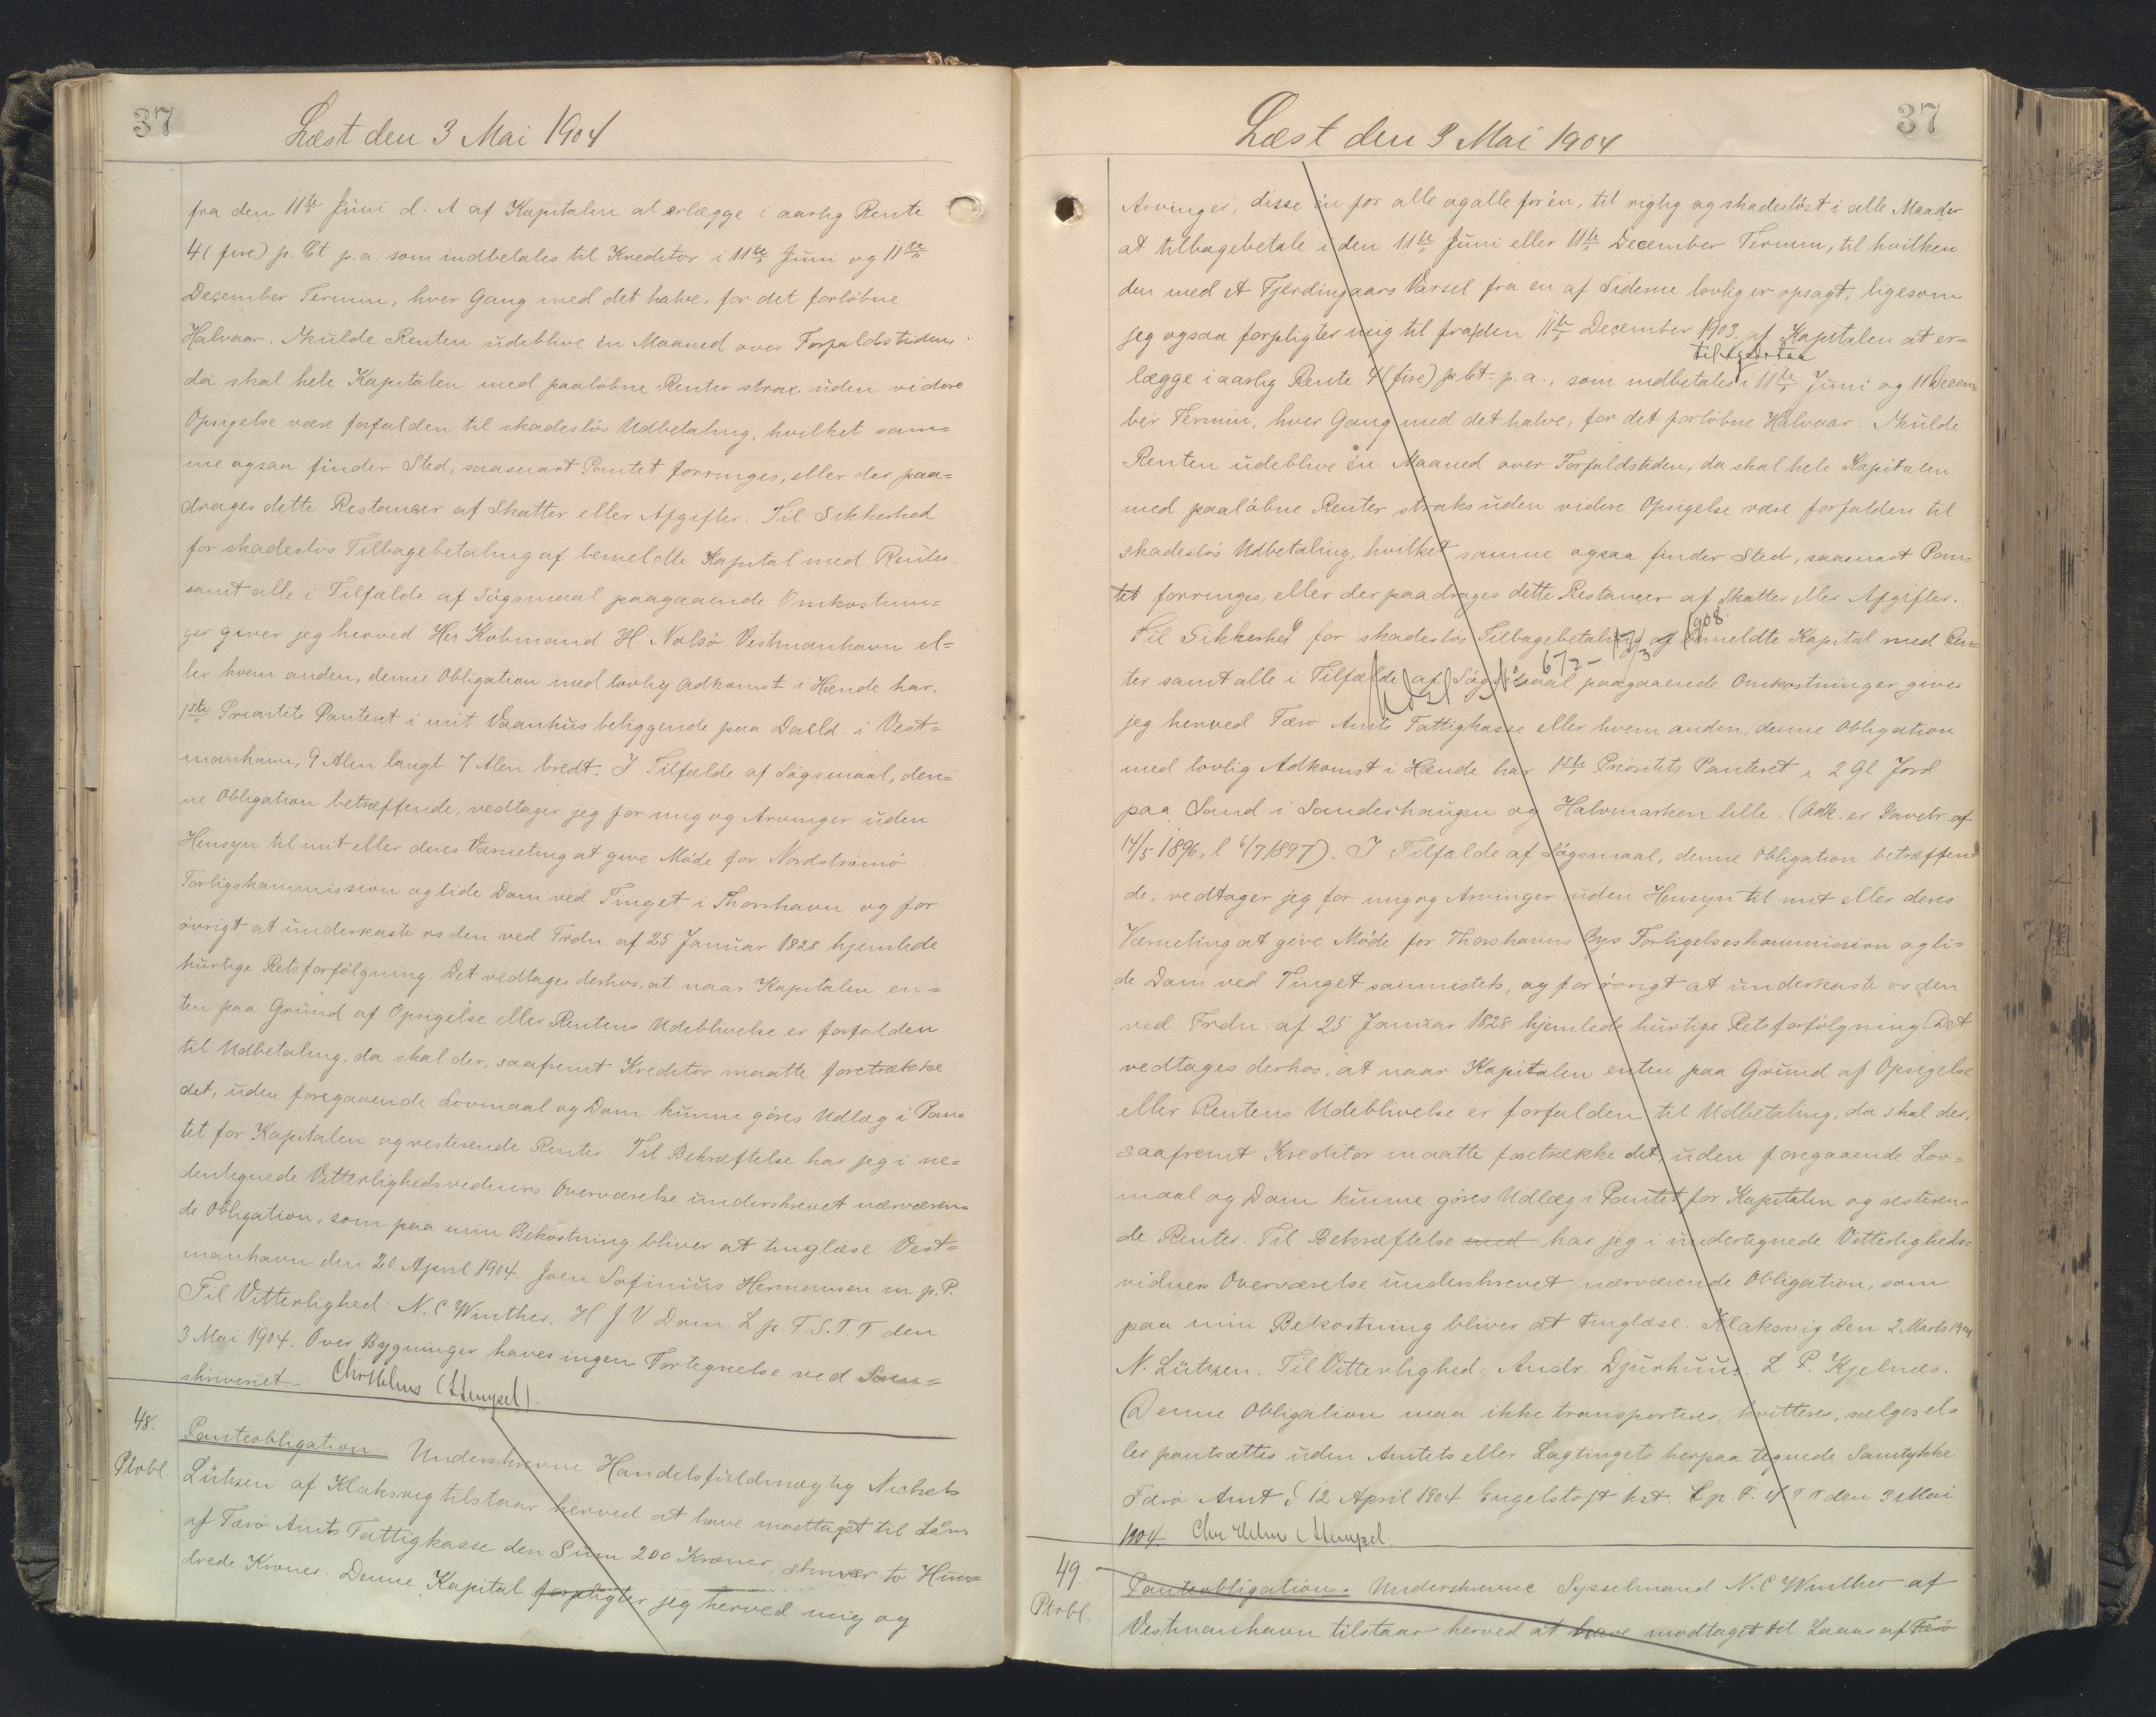 37
Læst den 3 Mai 1904
fra den 11te Juni d. A af Kapitalen at erlægge i aarlig Rente
4 (fire) p. Ct p.a. som indbetales til Kreditor i 11te Juni og 11te
December Termin, hver Gang med det halve, for det forløbne
Halvaar. Skulde Renten udeblive én Maaned over Forfaldstiden,
da skal hele Kapitalen med paaløbne Renter strax uden videre
Opsigelse være forfalden til skadesløs Udbetaling, hvilket sam=
me ogsaa finder Sted, saasnart Pantet forringes, eller der paa=
drages dette Restancer af Skatter eller Afgifter. Til Sikkerhed
for skadesløs Tilbagebetaling af bemeldte Kapital med Renter
samt alle i Tilfælde af Søgsmaal paagaaende Omkostnin=
ger giver jeg herved Her Købmand H. Nolsø Vestmanhavn el=
ler hvem anden, denne Obligation med lovlig Adkomst i Hænde har.
1ste Prioritets Panteret i mit Vaanhus beliggende paa Dalld. i Vest=
manhavn, 9 Alen langt 7 Alen bredt. I Tilfælde af Søgsmaal, den=
ne Obligation betræffende, vedtager jeg for mig og Arvinger uden
Hensyn til mit eller deres Værneting at give Møde for Nordstrømø
Forligskommission og lide Dom ved Tinget i Thorshavn og for
øvrigt at underkaste os den ved Frdn. af 25 Januar 1828 hjemlede
hurtige Retsforfølgning. Det vedtages derhos, at naar Kapitalen en=
ten paa Grund af Opsigelse eller Rentens Udeblivelse er forfalden
til Udbetaling, da skal der, saafremt Kreditor maatte foretrække
det, uden foregaaende Lovmaal og Dom kunne gøres Udlæg i Pan=
tet for Kapitalen og resterende Renter. Til Bekræftelse har jeg i ne=
dentegnede Vitterlighedsvidners Overværelse underskrevet nærværen=
de Obligation, som paa min Bekostning bliver at tinglæse. Vest=
manhavn den 20 April 1904. Joen Sofinius Hermansen m.p.P.
Til Vitterlighed: N. C Winther. H J V Dam. L p. F. S. T. T den
3 Mai 1904. Over Bygninger haves ingen Fortegnelse ved Soren=
skriveriet. (Stempel).
48.
Ptobl.
Panteobligation Underskrevne Handelsfuldmægtig Nickels
Lützen af Klaksvig tilstaar herved at have modtaget til Låns
af Færø Amts Fattigkasse den Sum 200 Kroner, skriver to Hun=
drede Kroner. Denne Kapital forpligter jeg herved mig og
37
Læst den 3 Mai 1904
Arvinger, disse én for alle og alle for én, til rigtig og skadesløst i alle Maader
at tilbagebetale i den 11te Juni eller 11te December Termin, til hvilken
den med et Fjerdingaars Varsel fra en af Siderne lovlig er opsagt, ligesom
jeg ogsaa forpligter mig til fra den 11te December 1903 af Kapitalen at er=
lægge i aarlig Rente 4 (fire) p Ct. p.a., som indbetales i 11te Juni og 11 Decem=
ber Termin, hver Gang med det halve, for det forløbne Halvaar. Skulde
Renten udeblive én Maaned over Forfaldstiden, da skal hele Kapitalen
med paaløbne Renter straks uden videre Opsigelse være forfalden til
skadesløs Udbetaling, hvilket samme ogsaa finder Sted, saasnart Pan=
tet forringes, eller der paadrages dette Restancer af Skatter eller Afgifter.
Til Sikkerhed for skadesløs Tilbagebetaling af bemeldte Kapital med Ren=
ter samt alle i Tilfælde af Søgsmaal paagaaende Omkostninger giver
Udsl No 672 - 17/3 1908.
jeg herved Færø Amts Fattigkasse eller hvem anden, denne Obligation
med lovlig Adkomst i Hænde har 1ste Prioritets Panteret i 2 Gl Jord
paa Sand i Sanderhaugen og Halvmarken lille. (Adk. er Gavebr. af
14/5 1896, l 6/7 1897). I Tilfælde af Søgsmaal, denne Obligation betræffen
de, vedtager jeg for mig og Arvinger uden Hensyn til mit eller deres
Værneting at give Møde for Thorshavns Bys Forligelseskommission og li=
de Dom ved Tinget sammesteds, og for øvrigt at underkaste os den
ved Frdn. af 25 Januar 1828 hjemlede hurtige Retsforfølgning. Det
vedtages derhos, at naar Kapitalen enten paa Grund af Opsigelse
eller Rentens Udeblivelse er forfalden til Udbetaling, da skal der,
saafremt Kreditor maatte foretrække det, uden foregaaende Lov=
maal og Dom kunne gøres Udlæg i Pantet for Kapitalen og resteren=
de Renter. Til Bekræftelse med har jeg i undertegnede Vitterligheds=
vidners Overværelse underskrevet nærværende Obligation, som
paa min Bekostning bliver at tinglæse. Klaksvig den 2 Marts 1904
N. Lützen. Til Vitterlighed: Andr. Djurhuus. L P. Kjelnæs.
(Denne Obligation maa ikke transporteres, kvitteres, sælges el=
ler pantsættes uden Amtets eller Lagtingets herpaa tegnede Samtykke
Færø Amt d 12 April 1904. Engelstoft kst. L p. F. T. T den 3 Mai
1904. (Stempel.
49.
Ptobl.
Panteobligation. Underskrevne Sysselmand N. C Winther af
Vestmanhavn tilstaar herved at have modtaget til Laans af Færø